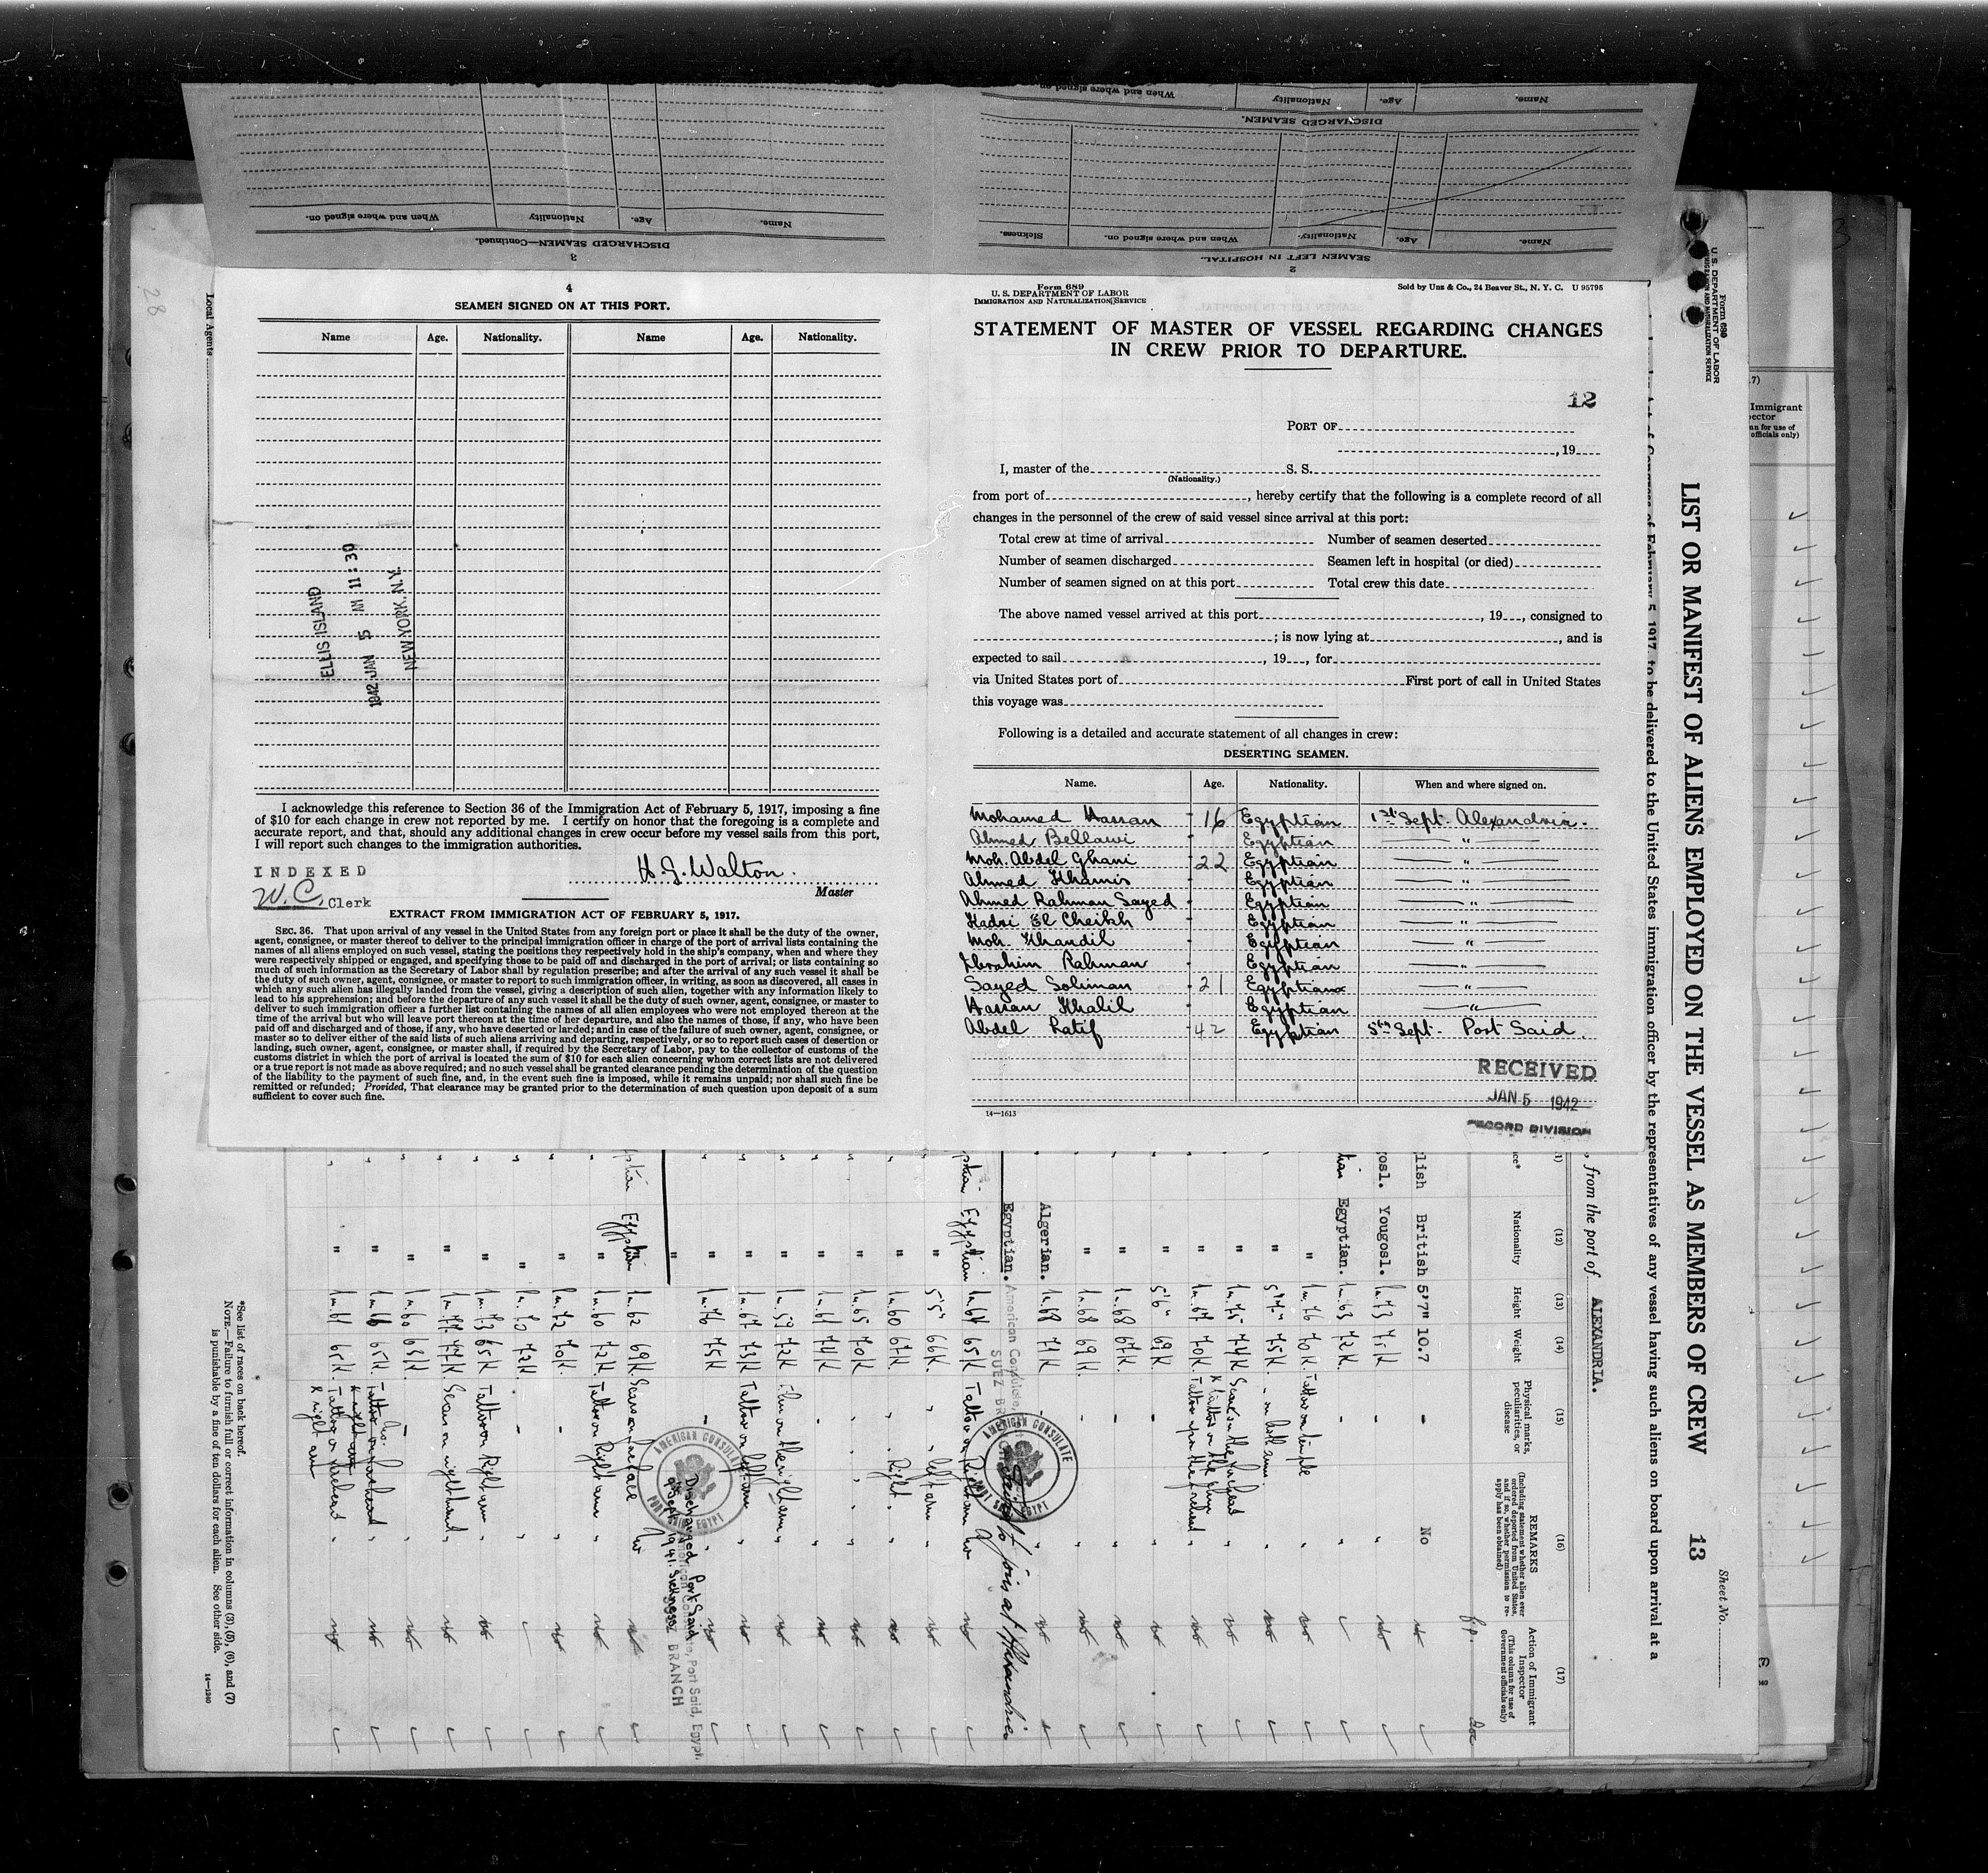 DISCHARGED SEAMEN.
Name.
Age.
Nationality
When and where signed on.
DISCHARGED SEAMEN—Continued.
3
Name.
Age.
Nationality.
When and where signed on.
Sickness.
SEAMEN LEFT IN HOSPITAL.
2
28
Local Agents
4
SEAMEN SIGNED ON AT THIS PORT.
Name Age. Nationality. Name Age. Nationality.
ELLIS ISLAND
1942 JAN 5 AM 11:30
NEW YORK, N.Y.
I acknowledge this reference to Section 36 of the Immigration Act of February 5, 1917, imposing a fine
of $10 for each change in crew not reported by me. I certify on honor that the foregoing is a complete and
accurate report, and that, should any additional changes in crew occur before my vessel sails from this port,
I will report such changes to the immigration authorities.
INDEXED
W.C. Clerk
H. J. Walton.
Master
EXTRACT FROM IMMIGRATION ACT OF FEBRUARY 5, 1917.
SEC. 36. That upon arrival of any vessel in the United States from any foreign port or place it shall be the duty of the owner,
agent, consignee, or master thereof to deliver to the principal immigration officer in charge of the port of arrival lists containing the
names of all aliens employed on such vessel, stating the positions they respectively hold in the ship's company, when and where they
were respectively shipped or engaged, and specifying those to be paid off and discharged in the port of arrival; or lists containing so
much of such information as the Secretary of Labor shall by regulation prescribe; and after the arrival of any such vessel it shall be
the duty of such owner, agent, consignee, or master to report to such immigration officer, in writing, as soon as discovered, all cases in
which any such alien has illegally landed from the vessel, giving a description of such alien, together with any information likely to
lead to his apprehension; and before the departure of any such vessel it shall be the duty of such owner, agent, consignee, or master to
deliver to such immigration officer a further list containing the names of all alien employees who were not employed thereon at the
time of the arrival but who will leave port thereon at the time of her departure, and also the names of those, if any, who have been
paid off and discharged and of those, if any, who have deserted or landed; and in case of the failure of such owner, agent, consignee, or
master so to deliver either of the said lists of such aliens arriving and departing, respectively, or so to report such cases of desertion or
landing, such owner, agent, consignee, or master shall, if required by the Secretary of Labor, pay to the collector of customs of the
customs district in which the port of arrival is located the sum of $10 for each alien concerning whom correct lists are not delivered
or a true report is not made as above required; and no such vessel shall be granted clearance pending the determination of the question
of the liability to the payment of such fine, and, in the event such fine is imposed, while it remains unpaid; nor shall such fine be
remitted or refunded; Provided, That clearance may be granted prior to the determination of such question upon deposit of a sum
sufficient to cover such fine.
Form 689
U. S. DEPARTMENT OF LABOR
IMMIGRATION AND NATURALIZATION SERVICE
Sold by Unz & Co., 24 Beaver St., N. Y. C. U 95795
STATEMENT OF MASTER OF VESSEL REGARDING CHANGES
IN CREW PRIOR TO DEPARTURE.
12
PORT OF
, 19
I, master of the S. S.
(Nationality.)
from port of , hereby certify that the following is a complete record of all
changes in the personnel of the crew of said vessel since arrival at this port:
Total crew at time of arrival Number of seamen deserted
Number of seamen discharged Seamen left in hospital (or died)
Number of seamen signed on at this port Total crew this date
The above named vessel arrived at this port , 19 , consigned to
; is now lying at , and is
expected to sail , 19 , for
via United States port of First port of call in United States
this voyage was
Following is a detailed and accurate statement of all changes in crew:
DESERTING SEAMEN.
Name. Age. Nationality. When and where signed on.
Mohamed Hassan - 16 Egyptian 1st Sept. Alexandria.
Ahmed Bellawi - Egyptian "
Moh. Abdel Ghani - 22 Egyptian "
Ahmed Khamis - Egyptian "
Ahmed Rahman Sayed - Egyptian "
Kadri El Cheikh - Egyptian "
Moh. Khandil - Egyptian "
Ibrahim Rahman - Egyptian "
Sayed Soliman - 21 Egyptian "
Hassan Khalil - Egyptian "
Abdel Latif - 42 Egyptian 5th Sept. Port Said.
RECEIVED
JAN 5 1942
RECORD DIVISION
14—1613
Form 680
U. S. DEPARTMENT OF LABOR
IMMIGRATION AND NATURALIZATION SERVICE
Sheet No.
LIST OR MANIFEST OF ALIENS EMPLOYED ON THE VESSEL AS MEMBERS OF CREW 13
of February 5, 1917, to be delivered to the United States immigration officer by the representatives of any vessel having such aliens on board upon arrival at a
, from the port of ALEXANDRIA.
(12) Nationality
(13) Height
(14) Weight
(15) Physical marks, peculiarities, or disease
(16) REMARKS (Including statement whether alien ever ordered deported from United States, and if so, whether permission to reapply has been obtained)
(17) Action of Immigrant Inspector (This column for use of Government officials only)
British 5'7" 10.7 - No
Yougosl. 1m.73 75K - "
Egyptian. 1m.63 72K. -
" 1m.76 70K. Tattoo on temple
" 5'7" 75K. - on both arms
" 1m.75 74K
" 1m.67 70K.
" 5'6" 69K. -
" 1m.68 67K. -
" 1m.68 69K. -
Algerian. 1m.68 71K -
Egyptian. Failed to join at Alexandria
American Consulate,
SUEZ BR
AMERICAN CONSULATE
PORT SAID EGYPT
Egyptian 1m.64 65K Tattoo on Right arm No
" 5'5" 66K. " left arm
" 1m.60 67K. " Right.
" 1m.65 70K
" 1m.61 74K -
" 1m.59 72K
" 1m.67 73K Tattoo on left arm
" 1m.76 75K -
" Discharged Port Said
9th Sept. 1941. Sickness
American Consulate, Port Said, Egypt.
SUEZ BRANCH
AMERICAN CONSULATE
PORT SAID EGYPT
Egyptian 1m.62 69K. Scars on face No
" 1m.60 72K. Tattoo on Right arm "
" 1m.72 70K. -
" 1m.70 72K -
" 1m.73 65K Tattoo on Right arm "
" 1m.77 77K Scar on right hand "
" 1m.60 63K. -
" 1m.66 65K. Tattoo on forehead
" 1m.61 65K. Tattoo on
x right arm
*See list of races on back hereof.
NOTE.—Failure to furnish full or correct information in columns (3), (5), (6), and (7)
is punishable by a fine of ten dollars for each alien. See other side.
14—1240